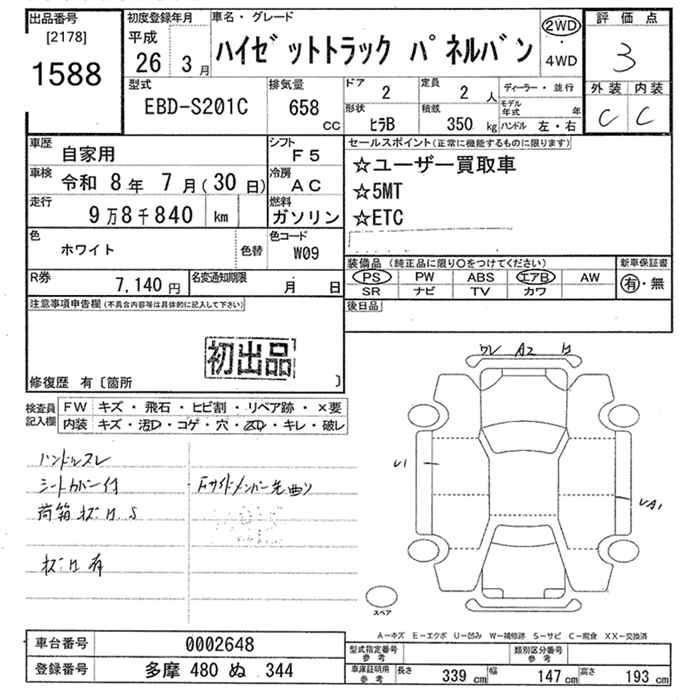 出品番号
[2178]
1588
初度登録年月
平成
26 3月
車名・グレード
ハイゼットトラック パネルバン
2WD
・
4WD
評価点
3
外装 内装
C C
型式
EBD-S201C
排気量
658
CC
ドア
2
定員
2人
形状
ヒラB
積載
350 kg
ディーラー・並行
モデル年式 年
ハンドル 左・右
車歴
自家用
シフト
F5
車検
令和 8年 7月(30日)
冷房
AC
走行
9万8千840 km
燃料
ガソリン
色
ホワイト
色替
色コード
W09
R券
7,140円
名変通知期限
月 日
セールスポイント(正常に機能するものに限ります)
☆ユーザー買取車
☆5MT
☆ETC
装備品(純正品に限り○をつけてください)
PS PW ABS エアB AW
SR ナビ TV カワ
新車保証書
有・無
後日品
注意事項申告欄(不具合内容等は具体的に記入して下さい)
初出品
修復歴 有〔箇所 〕
検査員記入欄
FW キズ・飛石・ヒビ割・リペア跡・×要
内装 キズ・汚レ・コゲ・穴・ スレ・キレ・破レ
ハンドルスレ
シートカバー付
荷箱キズ凹S
キズ凹有
Fサイドメンバー先曲り
ワレ A2 凹
U1
UA1
スペア
A-キズ E-エクボ U-凹み W-補修跡 S-サビ C-腐食 XX-交換済
車台番号
0002648
登録番号
多摩 480 ぬ 344
型式指定番号
参考
類別区分番号
参考
車庫証明用
参考
長さ 339 cm 幅 147 cm 高さ 193 cm